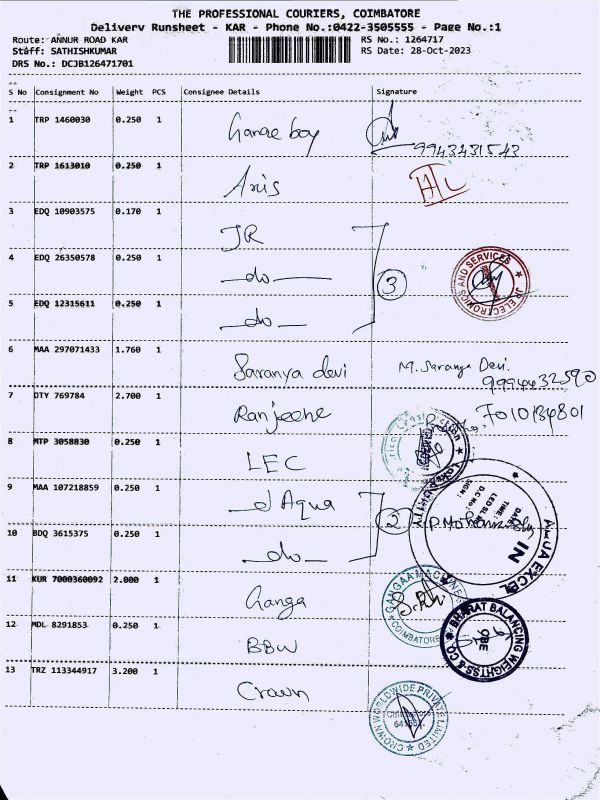 THE PROFESSIONAL COURIERS, COIMBATORE
Delivery Runsheet - KAR - Phone No.:0422-3505555 - Page No.:1
Route: ANNUR ROAD KAR RS No.: 1264717
Staff: SATHISHKUMAR RS Date: 28-Oct-2023
DRS No.: DCJB126471701
S No Consignment No Weight PCS Consignee Details Signature
1 TRP 1460030 0.250 1
9943431543
2 TRP 1613010 0.250 1 Anis
3 EDQ 10903575 0.170 1 JR
4 EDQ 26350578 0.250 1 do 3
JR ELECTRONICS AND SERVICES
5 EDQ 12315611 0.250 1 do
6 MAA 297071433 1.760 1 Saranya devi M. Saranya Devi.
9994432590
7 DTY 769784 2.700 1 Ranjeene 7010134801
8 MTP 3058830 0.250 1 LEC
9 MAA 107218859 0.250 1 d Aqua 2
AQUA EXCEL
IN
DATE:
TIME:
LED SL NO:
D.C NO:
SIGN:
10 BDQ 3615375 0.250 1 do
11 KUR 7000360092 2.000 1 Ganga
GANGAA MACHINE
COIMBATORE
12 MDL 8291853 0.250 1 BBW
BHARAT BALANCING WEIGHTSS & CO
13 TRZ 113344917 3.200 1 Crown
CROWN WORLDWIDE PRIVATE LIMITED